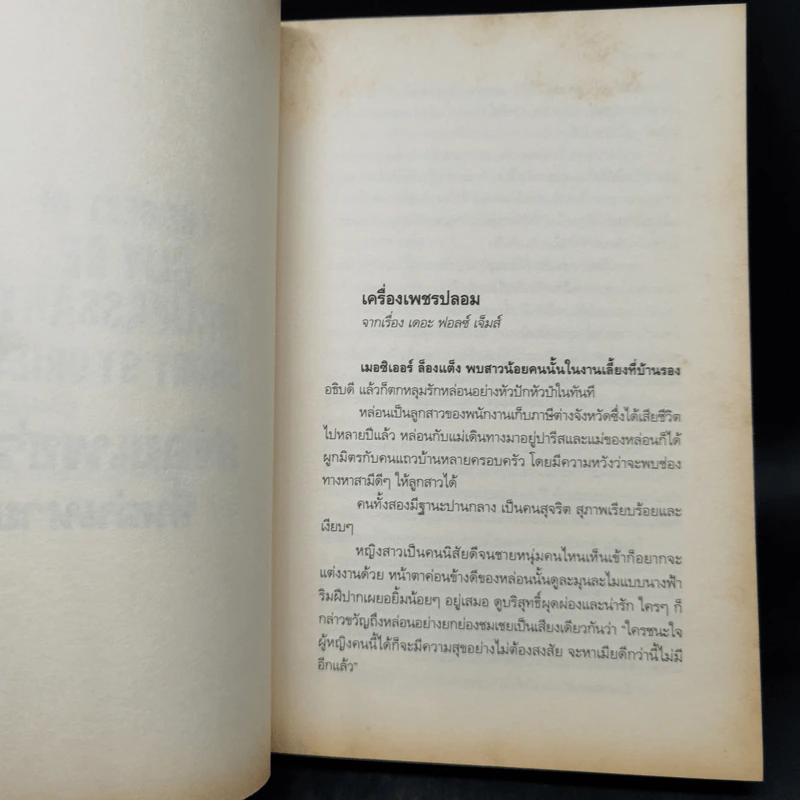 เครื่องเพชรปลอม
จากเรื่อง เดอะ ฟอลซ์ เจ็มส์
เมอซิเออร์ ล็องแต็ง พบสาวน้อยคนนั้นในงานเลี้ยงที่บ้านรอง
อธิบดี แล้วก็ตกหลุมรักหล่อนอย่างหัวปักหัวปำในทันที
หล่อนเป็นลูกสาวของพนักงานเก็บภาษีต่างจังหวัดซึ่งได้เสียชีวิต
ไปหลายปีแล้ว หล่อนกับแม่เดินทางมาอยู่ปารีสและแม่ของหล่อนก็ได้
ผูกมิตรกับคนแถวบ้านหลายครอบครัว โดยมีความหวังว่าจะพบช่อง
ทางหาสามีดีๆ ให้ลูกสาวได้
คนทั้งสองมีฐานะปานกลาง เป็นคนสุจริต สุภาพเรียบร้อยและ
เงียบๆ
หญิงสาวเป็นคนนิสัยดีจนชายหนุ่มคนไหนเห็นเข้าก็อยากจะ
แต่งงานด้วย หน้าตาค่อนข้างดีของหล่อนนั้นดูละมุนละไมแบบนางฟ้า
ริมฝีปากเผยอยิ้มน้อยๆ อยู่เสมอ ดูบริสุทธิ์ผุดผ่องและน่ารัก ใครๆ ก็
กล่าวขวัญถึงหล่อนอย่างยกย่องชมเชยเป็นเสียงเดียวกันว่า "ใครชนะใจ
ผู้หญิงคนนี้ได้ก็จะมีความสุขอย่างไม่ต้องสงสัย จะหาเมียดีกว่านี้ไม่มี
อีกแล้ว"